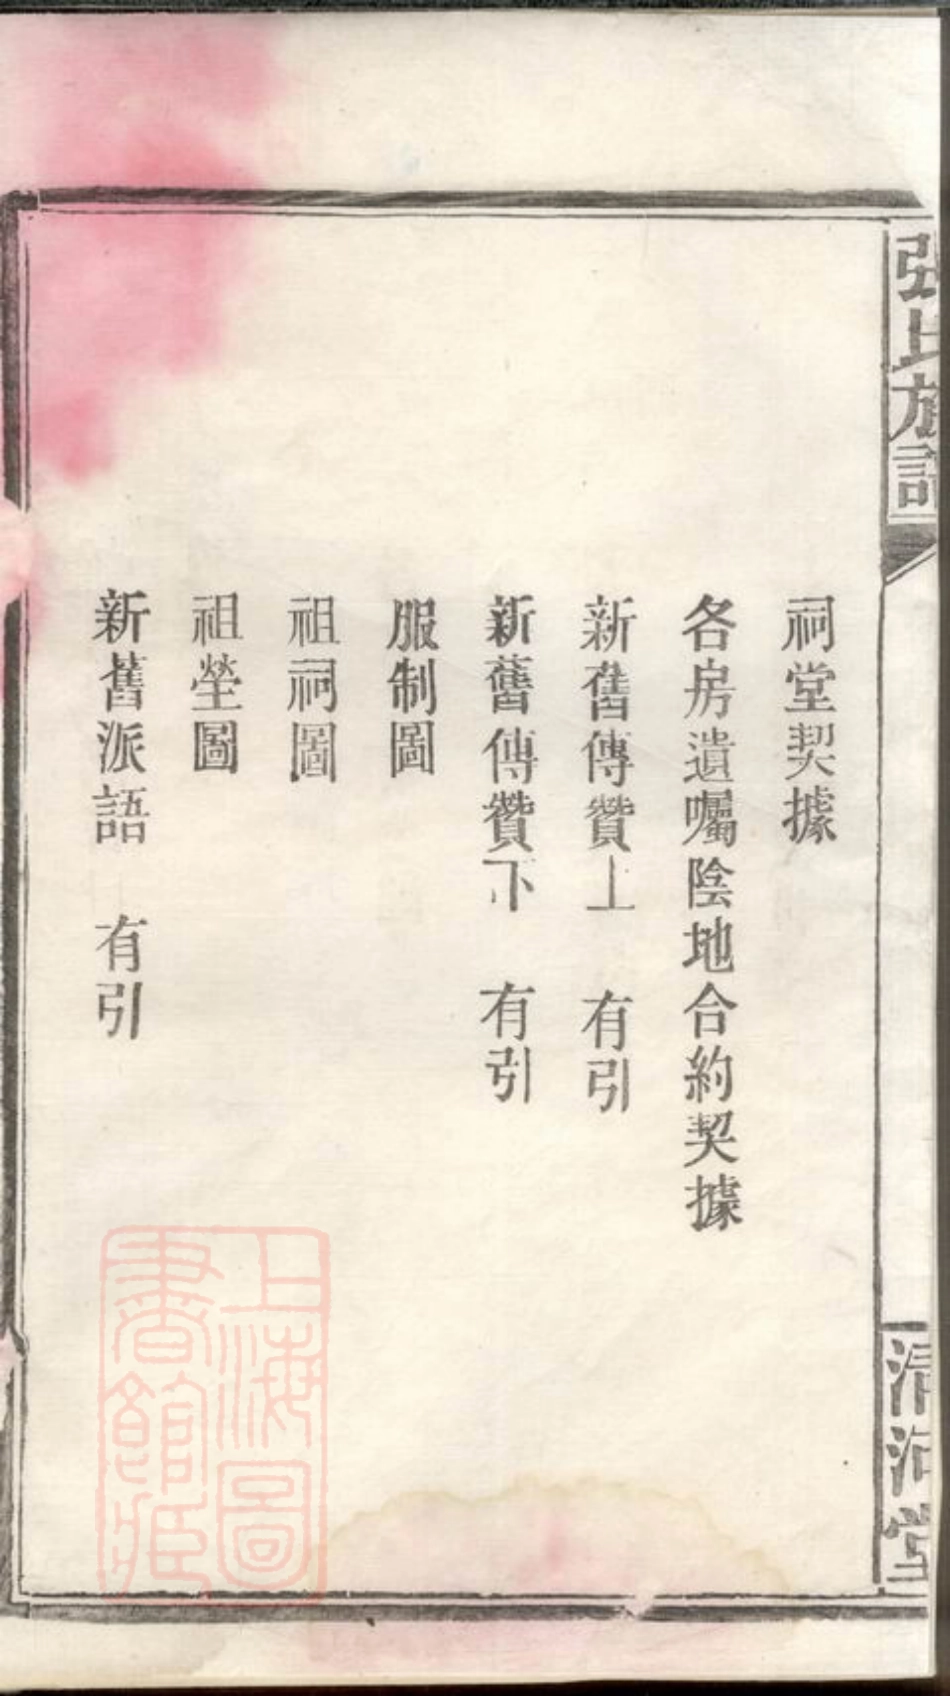 張氏族譜
祠堂契據
各房遺囑陰地合約契據
新舊傳贊上 有引
新舊傳贊下 有引
服制圖
祖祠圖
祖塋圖
新舊派語 有引
清河堂
上海圖書館藏